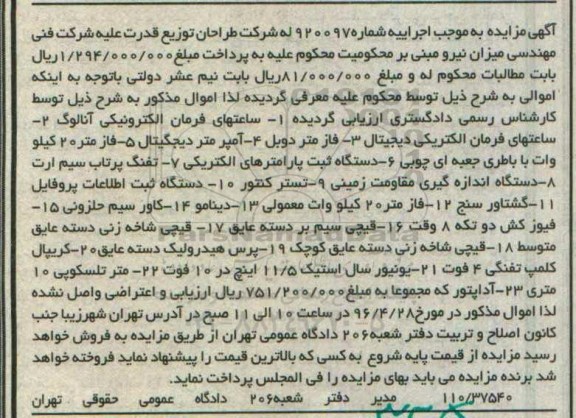 آگهی مزایده به موجب اجراییه شماره ۹۲۰۰۹۷ له شرکت طراحان توزیع قدرت علیه شرکت فنی
مهندسی میزان نیرو مبنی بر محکومیت محکوم علیه به پرداخت مبلغ ۱/۲۹۴/۰۰۰/۰۰۰ ریال
بابت مطالبات محکوم له و مبلغ ۸۱/۰۰۰/۰۰۰ ریال بابت نیم عشر دولتی باتوجه به اینکه
اموالی به شرح ذیل توسط محکوم علیه معرفی گردیده لذا اموال مذکور به شرح ذیل توسط
کارشناس رسمی دادگستری ارزیابی گردیده ۱- ساعتهای فرمان الکترونیکی آنالوگ ۲-
ساعتهای فرمان الکتریکی دیجیتال ۳- فاز متر دوبل ۴-آمپر متر دیجیگیتال ۵-فاز متر ۲۰ کیلو
وات با باطری جعبه ای چوبی ۶-دستگاه ثبت پارامترهای الکتریکی ۷- تفنگ پرتاب سیم ارت
۸-دستگاه اندازه گیری مقاومت زمینی ۹-تستر کنتور ۱۰- دستگاه ثبت اطلاعات پروفایل
۱۱-گشتاور سنج ۱۲-فاز متر ۲۰ کیلو وات معمولی ۱۳-دینامو ۱۴-کاور سیم حلزونی ۱۵-
فیوز کش دو تکه ۸ وقت ۱۶-قیچی سیم بر دسته عایق ۱۷- قیچی شاخه زنی دسته عایق
متوسط ۱۸-قیچی شاخه زنی دسته عایق کوچک ۱۹-پرس هیدرولیک دسته عایق ۲۰-کریپال
کلمپ تفنگی ۴ فوت ۲۱-یونیور سال استیک ۱۱/۵ اینچ در ۱۰ فوت ۲۲- متر تلسکوپی ۱۰
متری ۲۳-آداپتور که مجموعا به مبلغ ۷۵۱/۲۰۰/۰۰۰ ریال ارزیابی و اعتراضی واصل نشده
لذا اموال مذکور در مورخ ۹۶/۴/۲۸ در ساعت ۱۰ الی ۱۱ صبح در آدرس تهران شهرزیبا جنب
کانون اصلاح و تربیت دفتر شعبه ۲۰۶ دادگاه عمومی تهران از طریق مزایده به فروش خواهد
رسید مزایده از قیمت پایه شروع به کسی که بالاترین قیمت را پیشنهاد نماید فروخته خواهد
شد برنده مزایده می باید بهای مزایده را فی المجلس پرداخت نماید.
۱۱۰/۳۷۵۴۰ مدیر دفتر شعبه ۲۰۶ دادگاه عمومی حقوقی تهران